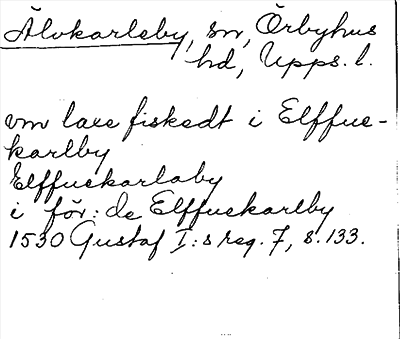 Älvkarleby, sn, Örbyhus
hd, Upps. l.
om laxe fiskedt i Elffue-
karlby
Elffuekarlaby
i för: de Elffuekarlby
1530 Gustaf I:s reg. 7, s. 133.